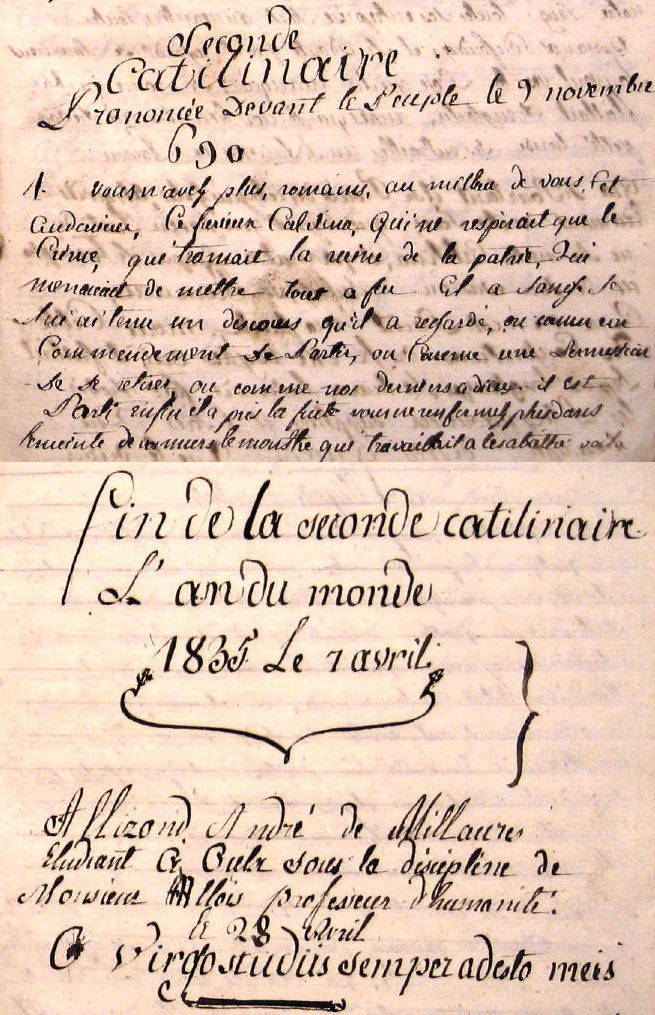 Seconde
Catilinaire
Prononcée Devant le Peuple le 9 novembre
690
1. vous n'avez plus, romains, au milieu de vous, cet
audacieux, Ce furieux Catilina, Qui ne respirait que le
Crime, qui tramait la ruine de la patrie, Qui
menacait de mettre tout a feu Et a Sang. Je
lui ai tenu un discours qu'il a regardé, ou comme un
Commendement de Partir, ou Comme une
de se retirer, ou comme nos derniers adieux il est
Parti enfin il a pris la fuite vous ne renfermez plus dans
l'enceinte de vos murs le monstre qui travaillait a les abattre voila
Fin de la seconde catilinaire
L'an du monde
1835 Le 7 avril.
Allizond André de Millaures
Etudiant a Oulx sous la discipline de
Monsieur Allois Professeur d'humanité.
le 28 Avril
O Virgo studiis semper adesto meis